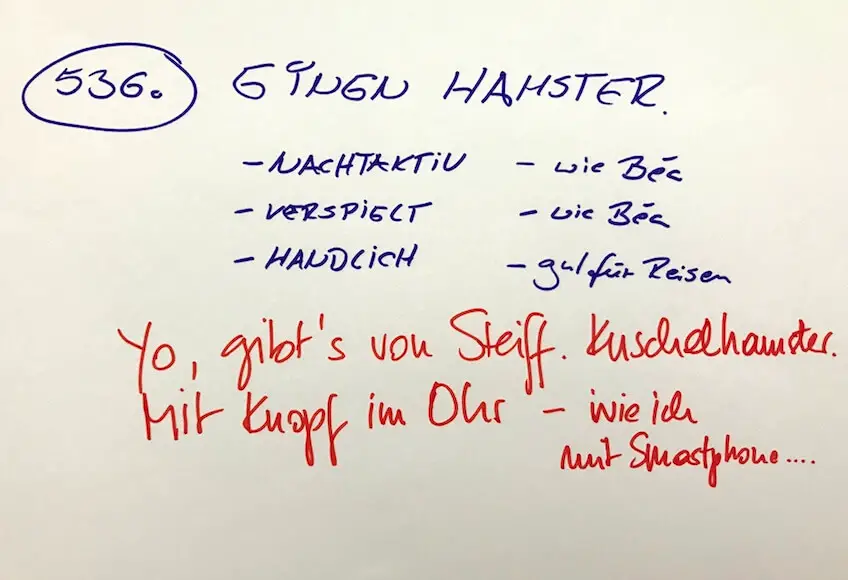 536. EINEN HAMSTER.
- NACHTAKTIV - wie Béa
- VERSPIELT - wie Béa
- HANDLICH - gut für Reisen
Yo, gibt's von Steiff. Kuschelhamster.
Mit Knopf im Ohr - wie ich
mit Smartphone....